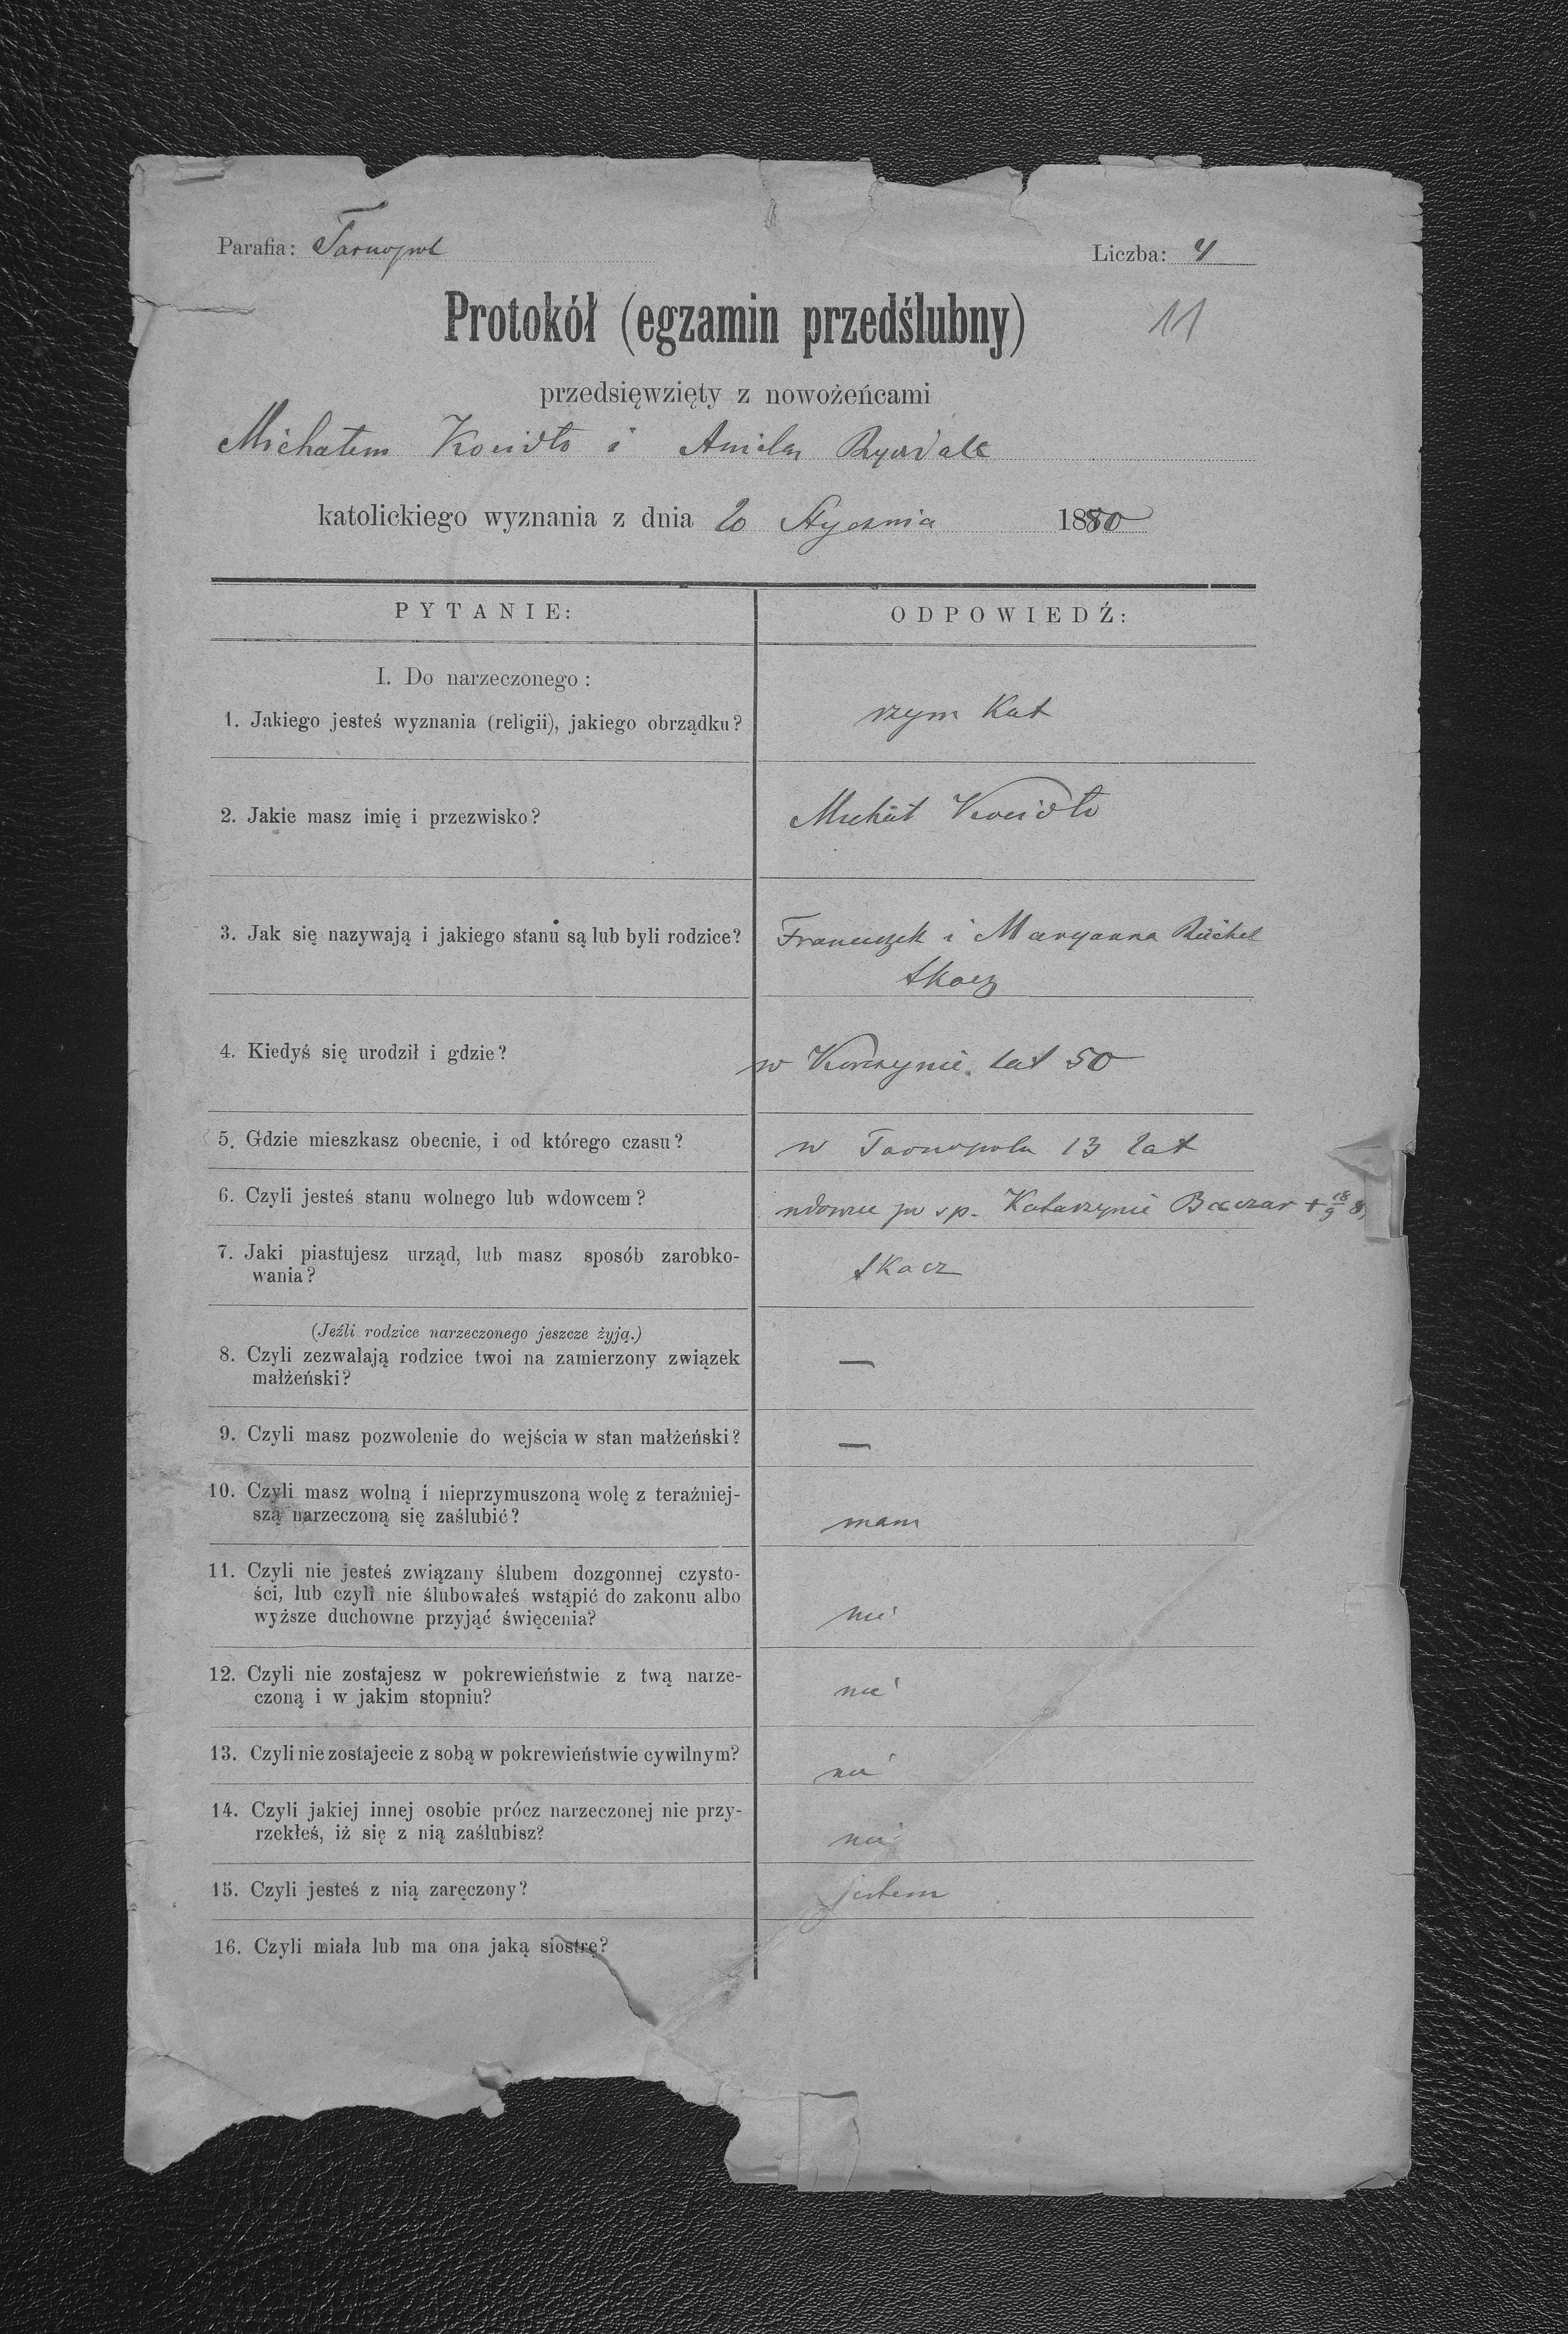 Parafia: Tarnopol
Liczba: 4
11
Protokół (egzamin przedślubny)
przedsięwzięty z nowożeńcami
Michałem i
katolickiego wyznania z dnia 20 Stycznia 18
PYTANIE:
ODPOWIEDŹ:
I. Do narzeczonego:
1. Jakiego jesteś wyznania (religii), jakiego obrządku?
rzym Kat
2. Jakie masz imię i przezwisko?
Michał
3. Jak się nazywają i jakiego stanu są lub byli rodzice?
Franciszek i Maryanna
tkacz
4. Kiedyś się urodził i gdzie?
w Korczynie lat 50
5. Gdzie mieszkasz obecnie, i od którego czasu?
w Tarnopolu 13 lat
6. Czyli jesteś stanu wolnego lub wdowcem?
po sp. Katarzynie + 18/9
7. Jaki piastujesz urząd, lub masz sposób zarobko-
wania?
tkacz
(Jeźli rodzice narzeczonego jeszcze żyją.)
8. Czyli zezwalają rodzice twoi na zamierzony związek
małżeński?
—
9. Czyli masz pozwolenie do wejścia w stan małżeński?
—
10. Czyli masz wolną i nieprzymuszoną wolę z teraźniej-
szą narzeczoną się zaślubić?
mam
11. Czyli nie jesteś związany ślubem dozgonnej czysto-
ści, lub czyli nie ślubowałeś wstąpić do zakonu albo
wyższe duchowne przyjąć święcenia?
nie
12. Czyli nie zostajesz w pokrewieństwie z twą narze-
czoną i w jakim stopniu?
nie
13. Czyli nie zostajecie z sobą w pokrewieństwie cywilnym?
nie
14. Czyli jakiej innej osobie prócz narzeczonej nie przy-
rzekłeś, iż się z nią zaślubisz?
nie
15. Czyli jesteś z nią zaręczony?
jestem
16. Czyli miała lub ma ona jaką siostrę?